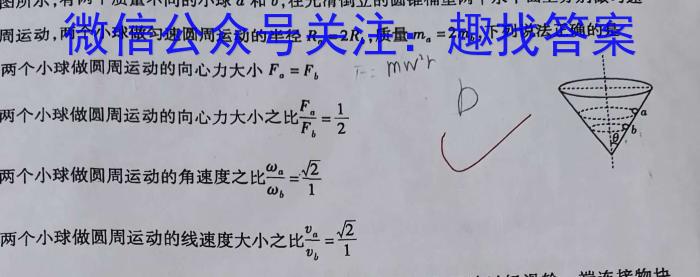 图所示,有两个质量不同的小球a和b,在光滑倒立的圆锥桶
周运动,两个小球做匀速圆周运动的半径R 2R 质量m_a=2 下列说法正确的是
微信公众号关注：趣找答案
两个小球做圆周运动的向心力大小 F_a=F_b
F= mw²r
两个小球做圆周运动的向心力大小之比 F_a/F_b=1/2
D
两个小球做圆周运动的角速度之比 ω_a/ω_b=√2/1
两个小球做圆周运动的线速度大小之比 v_a/v_b=√2/1
a
b
θ
端连接物块